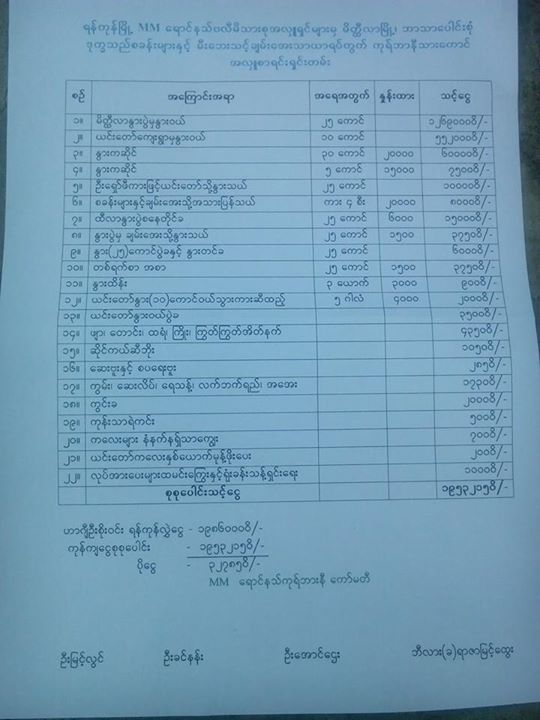 ရန်ကုန်မြို့ MM ရောင်နည်ဗလီမိသားစုအလှူရှင်များမှ မိတ္ထီလာမြို့၊ ဘာသာပေါင်းစုံ
ဒုက္ခသည်စခန်းများနှင့် မီးဘေးသင့်ချမ်းအေးသာယာရပ်ကွက် ကုရ်ဘာနီသားကောင်
အလှူစာရင်းရှင်းတမ်း
စဉ် အကြောင်းအရာ အရေအတွက် နှုန်းထား သင့်ငွေ
၁။ မိတ္ထီလာနွားပွဲမှနွားဝယ် ၂၅ ကောင် ၁၂၆၉၀၀၀၀ိ/-
၂။ ယင်းတော်ကျေးရွာမှနွားဝယ် ၁၀ ကောင် ၅၅၂၀၀၀ိ/-
၃။ နွားကဆိုင် ၃၀ ကောင် ၂၀၀၀၀ ၆၀၀၀၀ိ/-
၄။ နွားကဆိုင် ၅ ကောင် ၁၅၀၀၀ ၇၅၀၀ိ/-
၅။ ဦးရှော်ဖီကားဖြင့်ယင်းတော်သို့နွားသယ် ၂၅ ကောင် ၁၀၀၀၀ိ/-
၆။ စခန်းများနှင့်ချမ်းအေးသို့အသားပြန်သယ် ကား ၄ စီး ၂၀၀၀၀ ၈၀၀၀ိ/-
၇။ ထီလာနွားပွဲစနေတိုင်ခ ၂၅ ကောင် ၆၀၀၀ ၁၅၀၀၀ိ/-
၈။ နွားပွဲမှ ချမ်းအေးသို့နွားသယ် ၂၅ ကောင် ၁၅၀၀ ၃၇၅၀ိ/-
၉။ နွား(၂၅)ကောင်ပွဲခနှင့် နွားတင်ခ ၂၅ ကောင် ၆၀၀၀ိ/-
၁၀။ တစ်ရက်စာ အစာ ၂၅ ကောင် ၁၅၀၀ ၃၇၅၀ိ/-
၁၁။ နွားထိန်း ၃ ယောက် ၃၀၀၀ ၉၀၀ိ/-
၁၂။ ယင်းတော်နွား(၁၀)ကောင်ဝယ်သွားကားဆီထည့် ၅ ဂါလံ ၄၀၀၀ ၂၀၀၀ိ/-
၁၃။ ယင်းတော်နွားဝယ်ပွဲခ ၃၅၀၀ိ/-
၁၄။ ဖျာ၊ တောင်း၊ ထရံ၊ ကြိုး၊ ကြွတ်ကြွတ်အိတ်နက် ၄၃၅၀ိ/-
၁၅။ ဆိုင်ကယ်ဆီဘိုး ၁၀၅၀ိ/-
၁၆။ ဆေးဗူးနှင့် စပရေးဗူး ၂၈၅ိ/-
၁၇။ ကွမ်း၊ ဆေးလိပ်၊ ရေသန့်၊ လက်ဘက်ရည်၊ အအေး ၁၇၃၀ိ/-
၁၈။ ကွင်းခ ၂၀၀၀ိ/-
၁၉။ ကုန်းသာရဲကင်း ၅၀၀ိ/-
၂၀။ ကလေးများ နံနက်နရှ်သာကျွေး ၇၀၀ိ/-
၂၁။ ယင်းတော်ကလေးနှစ်ယောက်မုန့်ဖိုးပေး ၂၀၀ိ/-
၂၂။ လုပ်အားပေးများထမင်းကြွေးနှင့်ရုံးခန်းသန့်ရှင်းရေး ၁၀၀၀ိ/-
စုစုပေါင်းသင့်ငွေ ၁၉၅၃၂၁၅ိ/-
ဟာဂျီဦးစိုးဝင်း ရန်ကုန်လွှဲငွေ - ၁၉၈၆၀၀၀ိ/-
ကုန်ကျငွေစုစုပေါင်း - ၁၉၅၃၂၁၅ိ/-
ပိုငွေ - ၃၂၇၈၅ိ/-
MM ရောင်နည်ကုရ်ဘာနီ ကော်မတီ
ဦးမြင့်လွင် ဦးခင်နန်း ဦးအောင်ဌေး ဘီလား(ခ)ရာဇာမြင့်ထွေး